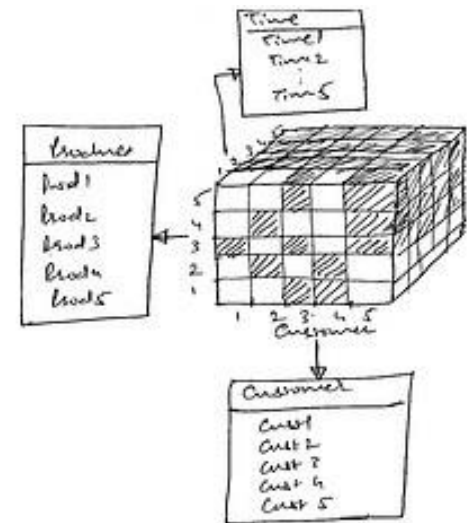 Time
Time1
Time2
Time5
Product
Prod1
Prod2
Prod3
Prod4
Prod5
1 2 3 4 5
5
4
3
2
1
1 2 3 4 5
Customer
Customer
Cust1
Cust 2
Cust 3
Cust 4
Cust 5